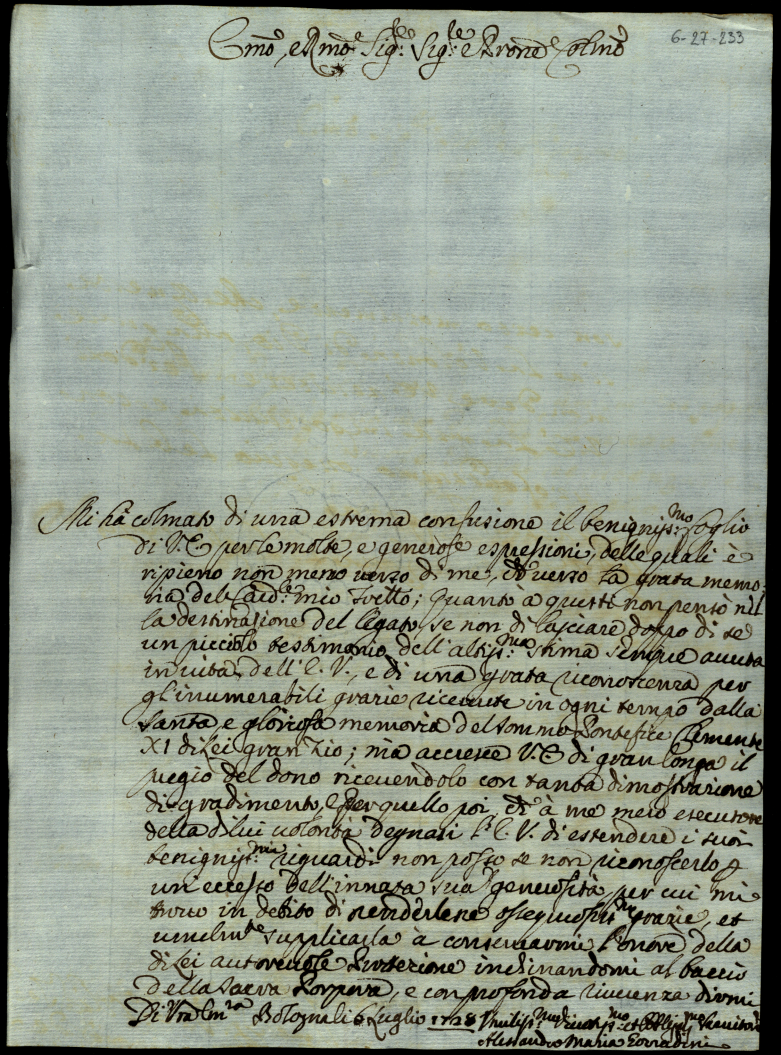 6-27-233
Emo, e Rmo Sigre Sigre e Prone Colmo
Mi hà colmato di una estrema confusione il benigniss:mo foglio
di V:E per le molte, e generose espressioni, delle quali è
ripieno non meno verso di me, che verso la grata memo-
ria del mio Fratello; Quanto à questi non pensò nel
la destinazione del legato, se non di lasciare doppo di se
un picciolo testimonio dell'altiss:ma stima sempre avuta
in vita dell'E. V., e di una grata riconoscenza per
gl'inumerabili grazie ricevute in ogni tempo dalla
Santa, e gloriosa memoria del Sommo Pontefice Clemente
XI di Lei gran Zio; mà accresce V.E di gran longa il
pregio del dono ricevendolo con tanta dimostrazione
di gradimento, e per quello poi, che à me mero esecutore
della di lui volontà degnasi l'E. V. di estendere i suoi
benigniss:mi riguardi non posso se non riconoscerlo p
un eccesso dell'innata sua generosità, per cui mi
trovo in debito di renderlene ossequiosiss:me grazie, et
umilmte supplicarla à conservarmi l'onore della
di Lei autorevole Protezione inchinandomi al baccio
della Sacra Porpora, e con profonda riverenza dirmi
Di Vra Emza Bologna li 6 Luglio 1728 Servitore
Alessandro Maria Corradini